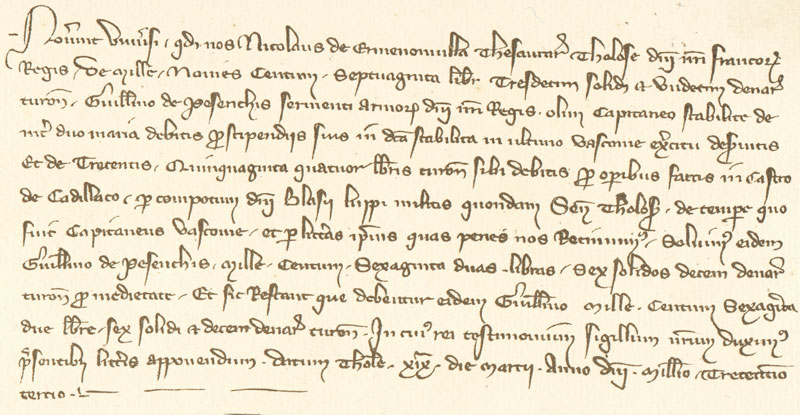 Noverint universi, qd nos Nicolaus de Ermenonvilla Thesaurar Tholose dni nri francor
Regis, De Mille, Novies Centum, Septuaginta libr Tresdecim solid & Undecim denar
turon, Guillmo de Pesenchis servienti armor dni nri Regis, olim Capitaneo stabilite de
int duo maria debitis p stipendiis suis in dca stabilita in ultimo Vasconie exercitu deservitis
Et de Trecentis, Quinquaginta quatuor libris turon sibi debitis p operibus factis in Castro
de Cadillaco, p compotum dni Blasii luppi militis quondam Sen Tholose, de tempore quo
fuit Capitaneus Vasconie, et per litteras ipsius quas penes nos Retinuimus, Solvimus eidem
Guillmo de Pesenchis, Mille, Centum, Sexaginta duas libras, Sex solidos decem denar
turon p medietate, Et sic Restant que debentur eidem Guillmo Mille, Centum Sexaginta
due libre, sex solidi & decem denar turon. In cui rei testimonium sigillum nrum duximus
psentibus litteris apponendum. datum Thole, xix, die Martii, Anno dni, Millio, Trecentesimo
tercio.